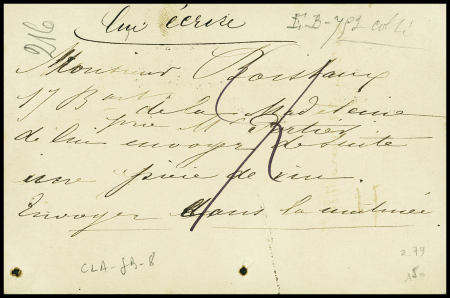 lui écrire
E B - 751 coll
216
Monsieur Boissaux
17 Bard de la Madeleine
prie Mr Tortier
de lui envoyer de suite
une pièce de vin.
Envoyer dans la matinée
CLA-JB-8
2.79
150